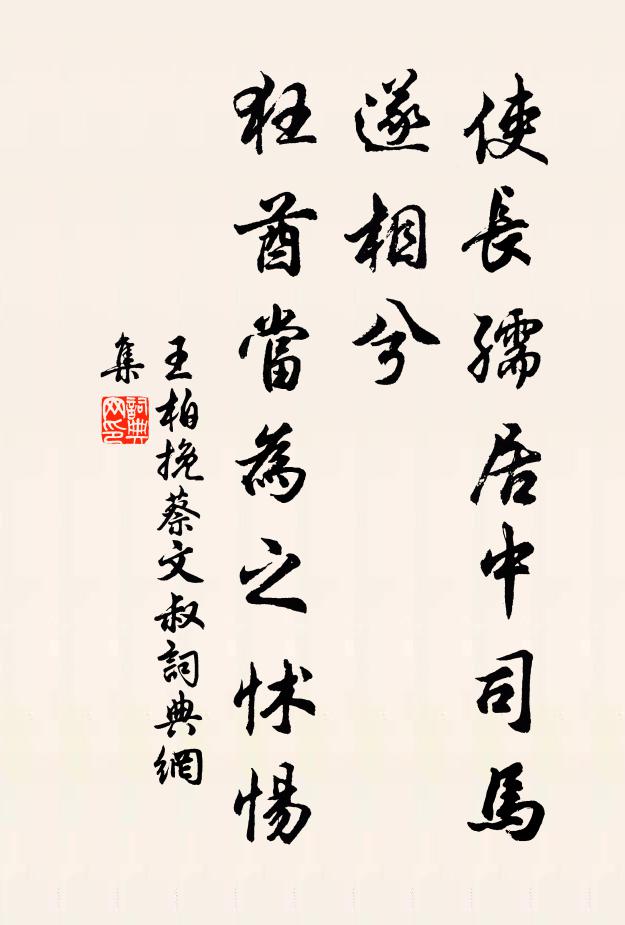 使長孺居中司馬
遂相兮
狂酋當為之怵惕
王柏挽蔡文叔詞典網
集
詞典
网印